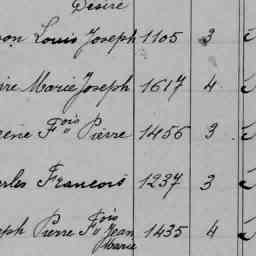 Désiré
on Louis Joseph 1105 3
ire Marie Joseph 1617 4
rène Fois Pierre 1456 3
arles Francois 1237 3
eph Pierre Fois Jean 1435 4
Marie